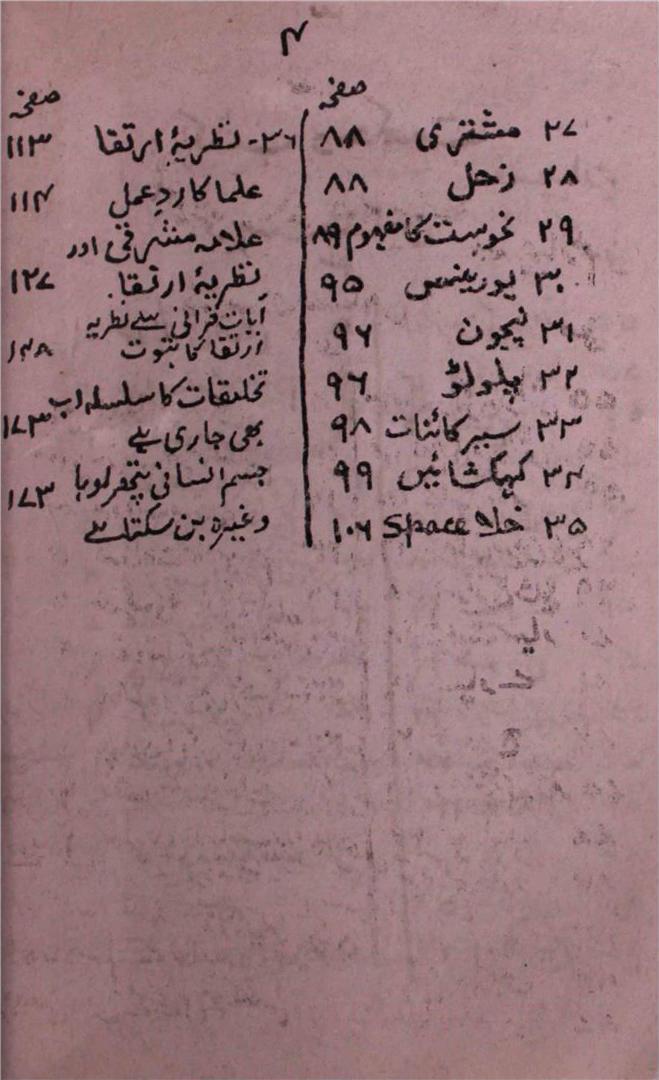 ۴
صفحہ
۲۷ مشتری ۸۸
۲۸ زحل ۸۸
۲۹ نحوست کا مفہوم ۸۹
۳۰ یورینس ۹۵
۳۱ نیچون ۹۶
۳۲ پلوٹو ۹۶
۳۳ سیر کائنات ۹۸
۳۴ کہکشائیں ۹۹
۳۵ خلاء Space ۱۰۶
صفحہ
۳۶- نظریۂ ارتقا ۱۱۳
علما کا ردِ عمل ۱۱۴
علامہ مشرقی اور
نظریۂ ارتقا. ۱۲۷
آیات قرآنی سے نظریہ
ارتقا کا ثبوت ۱۴۸
تخلیقات کا سلسلہ اب
بھی جاری ہے ۱۷۳
جسم انسانی پتھر لوہا
وغیرہ بن سکتا ہے ۱۷۳